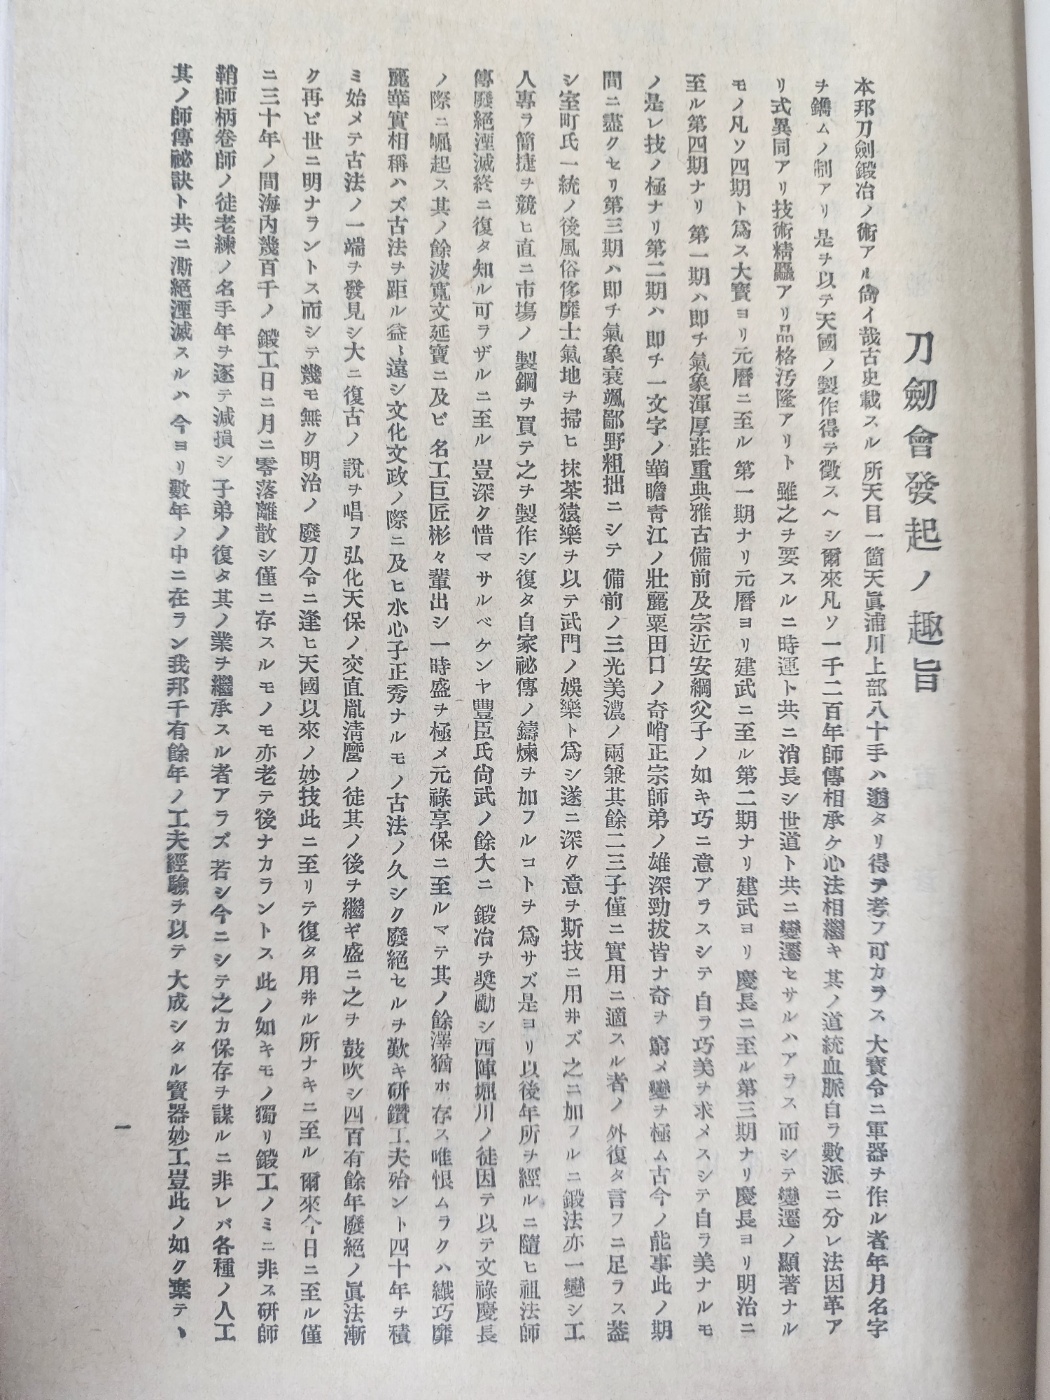 刀劍會發起ノ趣旨
本邦刀劍鍛冶ノ術アル尙イ哉古史載スル所天目一箇天眞浦川上部八十手ハ邈タリ得テ考フ可カラス大寶令ニ軍器ヲ作ル者年月名字
ヲ鐫ムノ制アリ是ヲ以テ天國ノ製作得テ徵スヘシ爾來凡ソ一千二百年師傳相承ケ心法相繼キ其ノ道統血脈自ラ數派ニ分レ法因革ア
リ式異同アリ技術精麤アリ品格汚隆アリト雖之ヲ要スルニ時運ト共ニ消長シ世道ト共ニ變遷セサルハアラス而シテ變遷ノ顯著ナル
モノ凡ソ四期ト爲ス大寶ヨリ元曆ニ至ル第一期ナリ元曆ヨリ建武ニ至ル第二期ナリ建武ヨリ慶長ニ至ル第三期ナリ慶長ヨリ明治ニ
至ル第四期ナリ第一期ハ即チ氣象渾厚莊重典雅古備前及宗近安綱父子ノ如キ巧ニ意アラスシテ自ラ巧美ヲ求メスシテ自ラ美ナルモ
ノ是レ技ノ極ナリ第二期ハ即チ一文字ノ華瞻靑江ノ壯麗粟田口ノ奇峭正宗師弟ノ雄深勁拔皆ナ奇ヲ窮メ變ヲ極ム古今ノ能事此ノ期
間ニ盡クセリ第三期ハ即チ氣象衰颯鄙野粗拙ニシテ備前ノ三光美濃ノ兩兼其餘二三子僅ニ實用ニ適スル者ノ外復タ言フニ足ラス蓋
シ室町氏一統ノ後風俗侈靡士氣地ヲ掃ヒ抹茶猿樂ヲ以テ武門ノ娛樂ト爲シ遂ニ深ク意ヲ斯技ニ用井ズ之ニ加フルニ鍛法亦一變シ工
人專ラ簡捷ヲ競ヒ直ニ市場ノ製鋼ヲ買テ之ヲ製作シ復タ自家祕傳ノ鑄煉ヲ加フルコトヲ爲サズ是ヨリ以後年所ヲ經ルニ隨ヒ祖法師
傳廢絕湮滅終ニ復タ知ル可ラザルニ至ル豈深ク惜マサルベケンヤ豐臣氏尙武ノ餘大ニ鍛冶ヲ奬勵シ西陣堀川ノ徒因テ以テ文祿慶長
ノ際ニ崛起ス其ノ餘波寬文延寶ニ及ビ名工巨匠彬々輩出シ一時盛ヲ極メ元祿享保ニ至ルマテ其ノ餘澤猶ホ存ス唯恨ムラクハ纖巧靡
麗華實相稱ハズ古法ヲ距ル益〻遠シ文化文政ノ際ニ及ヒ水心子正秀ナルモノ古法ノ久シク廢絕セルヲ歎キ硏鑽工夫殆ント四十年ヲ積
ミ始メテ古法ノ一端ヲ發見シ大ニ復古ノ說ヲ唱フ弘化天保ノ交直胤淸麿ノ徒其ノ後ヲ繼ギ盛ニ之ヲ鼓吹シ四百有餘年廢絕ノ眞法漸
ク再ビ世ニ明ナラントス而シテ幾モ無ク明治ノ廢刀令ニ逢ヒ天國以來ノ妙技此ニ至リテ復タ用井ル所ナキニ至ル爾來今日ニ至ル僅
ニ三十年ノ間海內幾百千ノ鍛工日ニ月ニ零落離散シ僅ニ存スルモノモ亦老テ後ナカラントス此ノ如キモノ獨リ鍛工ノミニ非ス硏師
鞘師柄卷師ノ徒老練ノ名手年ヲ逐テ減損シ子弟ノ復タ其ノ業ヲ繼承スル者アラズ若シ今ニシテ之カ保存ヲ謀ルニ非レバ各種ノ人工
其ノ師傳祕訣ト共ニ漸絕湮滅スルハ今ヨリ數年ノ中ニ在ラン我邦千有餘年ノ工夫經驗ヲ以テ大成シタル寶器妙工豈此ノ如ク棄テヽ
一